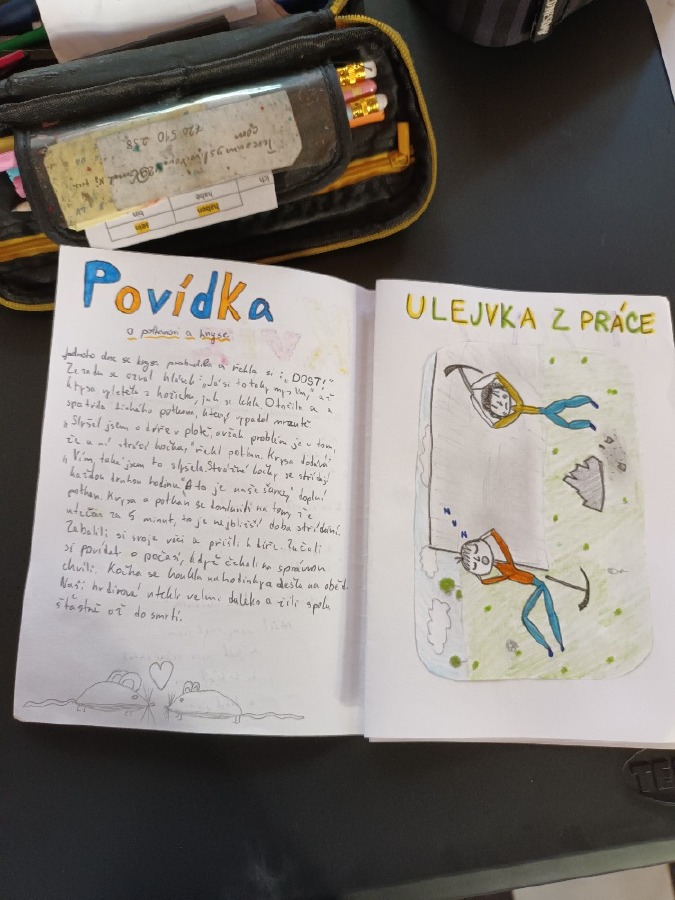 Povídka
o potkanovi a kryse
Jednoho dne se krysa probudila a řekla si: „DOST!"
Ze zadu se ozval hlásek: „Já si to taky myslím," až
krysa vyletěla z kožichu, jak se lekla. Otočila se a
spatřila divného potkana, který vypadal
„Slyšel jsem o díře v plotě, avšak problém je v tom,
že u ní stráží kočka," řekl potkan. Krysa dodává
„Vím, také jsem to slyšela. Strážní kočky se střídají
každou druhou hodinu" „A to je naše šance," doplní
potkan. Krysa a potkan se domluvili na tom, že
utečou za 5 minut, to je nejbližší doba střídání.
Zabalili si svoje věci a přišli k díře. Začali
si povídat o počasí, když čekali na správnou
chvíli. Kočka se koukla na hodinky a dešla na oběd.
Naši hrdinové utekli velmi daleko a žili spolu
šťastně až do smrti.
ULEJVKA Z PRÁCE
N N N
720 510 258
ich
habe
haben
bin
sein